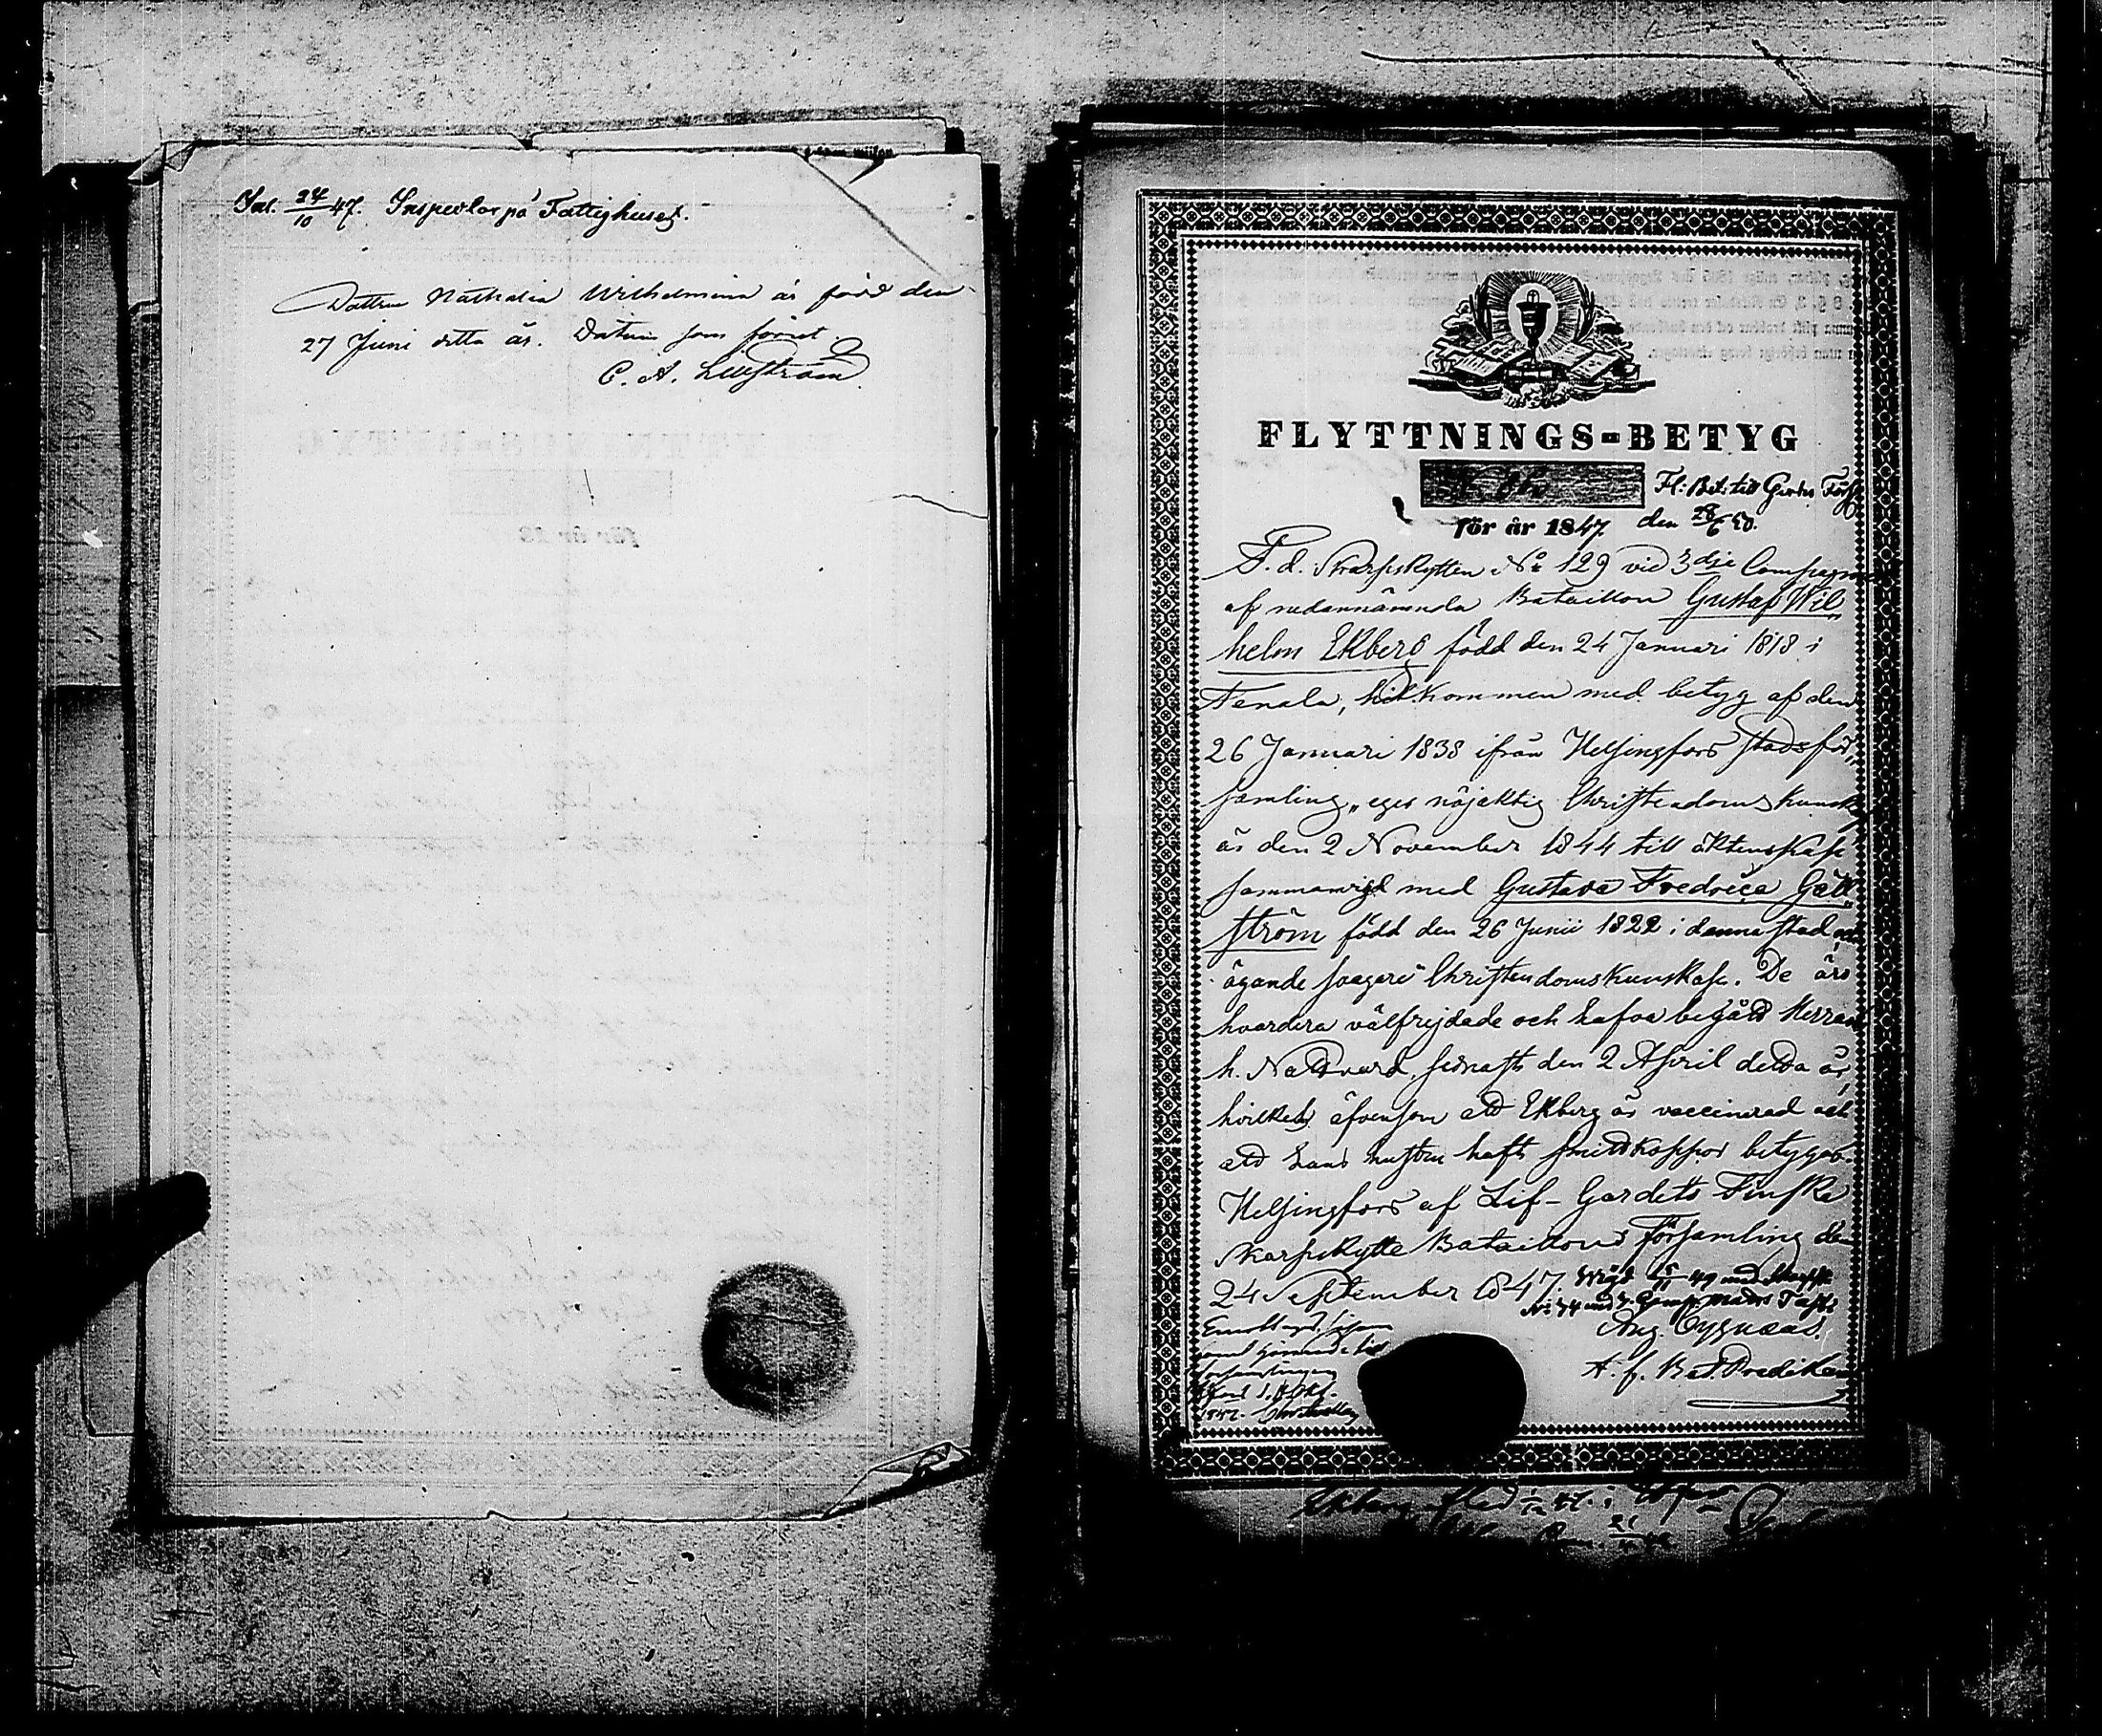 Inl. 24/10 47. Inspector på Fattighuset.
Dottren Nathalia Wilhelmina är född den
27 Juni detta år. Datum som förut.
C. A.
FLYTTNINGS-BETYG
Fl: Bet: till Gardes Förs.
för år 1847. den 28/6 50.
F. d. Skarpskytten No 129 vid 3dje Compagni
af nedannämnda Bataillon Gustaf Wil
helm Ekberg född den 24 Januari 1818 i
Tenala, hitkommen med betyg af den
26 Januari 1838 ifrån Helsingfors stadsför„
samling, eger nöjaktig Christendomskunsk.
är den 2 November 1844 till äktenskap
sammanvigd med Gustava Fredrica Gäll„
ström född den 26 Junii 1822 i denna stad och
ägande svagare Christendomskunskap. De äro
hvardera välfrejdade och hafva begått Herrans
h. Nattvard, sednast den 2 April detta år,
hvilket äfvensom att Ekberg är vaccinerad och
att hans hustru haft smittkoppor betygas.
Helsingfors af Lif-Gardets Finska
Skarpskytte Bataillons Församling den
24 September 1847. Wigd 15/11 49 med Skarpsk.
No 34 vid 3. Comp. Mats
Aug. Cygnæus.
A. f. Bat. Predikan
församlingen
1847.
Ekberg afled